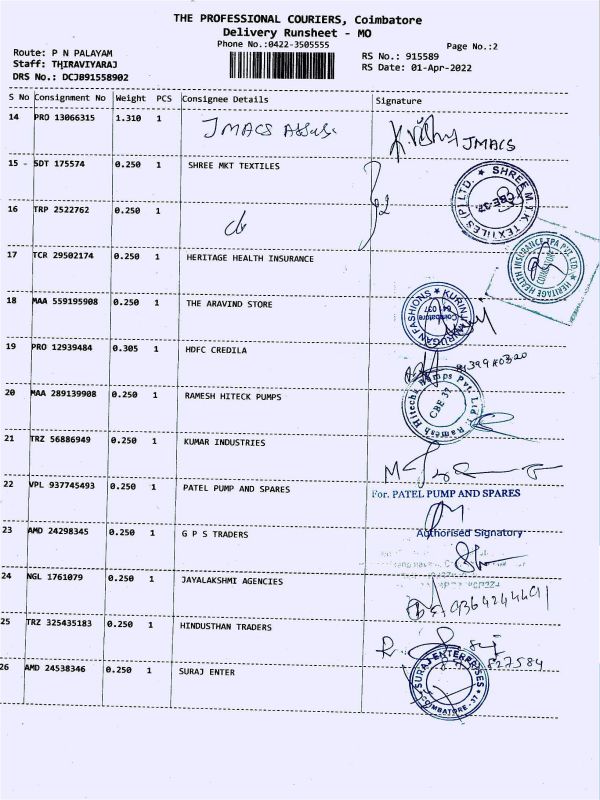 THE PROFESSIONAL COURIERS, Coimbatore
Delivery Runsheet - MO
Phone No.:0422-3505555
Page No.:2
Route: P N PALAYAM
Staff: THIRAVIYARAJ
DRS No.: DCJB91558902
RS No.: 915589
RS Date: 01-Apr-2022
S No Consignment No Weight PCS Consignee Details Signature
14 PRO 13066315 1.310 1 JMACS JMACS
15 - SDT 175574 0.250 1 SHREE MKT TEXTILES
SHREE M.T.K. TEXTILES (P) LTD. CBE-37.
16 TRP 2522762 0.250 1
17 TCR 29502174 0.250 1 HERITAGE HEALTH INSURANCE
HERITAGE HEALTH INSURANCE TPA PVT. LTD.
18 MAA 559195908 0.250 1 THE ARAVIND STORE
KURINJI MURUGAN FASHIONS Coimbatore 641 037
19 PRO 12939484 0.305 1 HDFC CREDILA
20 MAA 289139908 0.250 1 RAMESH HITECK PUMPS
Ramesh Hitech Pumps Pvt. Ltd. CBE 37
21 TRZ 56886949 0.250 1 KUMAR INDUSTRIES
22 VPL 937745493 0.250 1 PATEL PUMP AND SPARES
For. PATEL PUMP AND SPARES
Authorised Signatory
23 AMD 24298345 0.250 1 G P S TRADERS
24 NGL 1761079 0.250 1 JAYALAKSHMI AGENCIES
25 TRZ 325435183 0.250 1 HINDUSTHAN TRADERS
26 AMD 24538346 0.250 1 SURAJ ENTER
SURAJ ENTERPRISES COIMBATORE - 37